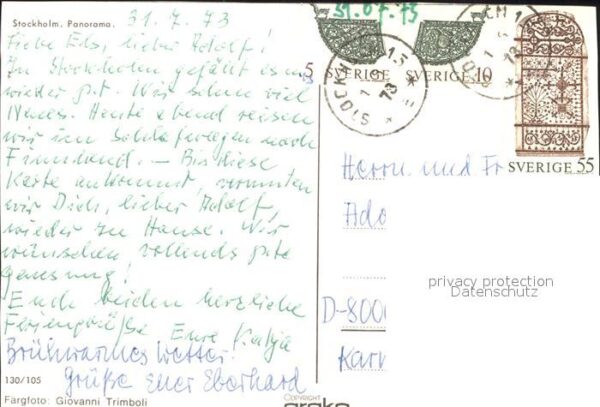 Stockholm. Panorama.
31.7.73
31.07.73
Liebe Els, lieber Adolf!
In Stockholm gefällt es uns
wieder gut. Wir sehen viel
Neues. Heute abend reisen
wir im Schlafwagen nach
Finnland. — Bis diese
Karte ankommt, vermuten
wir Dich, lieber Adolf,
wieder zu Hause. Wir
wünschen vollends gute
Genesung!
Euch beiden herzliche
Feriengrüße Eure Katja
Brühwarmes Wetter
Grüße Euer Eberhard
130/105
Färgfoto: Giovanni Trimboli
5 SVERIGE
SVERIGE 10
SVERIGE 55
STOCKH
13
73
Herrn und Fr
Ado
D-8000
privacy protection
Datenschutz
COPYRIGHT